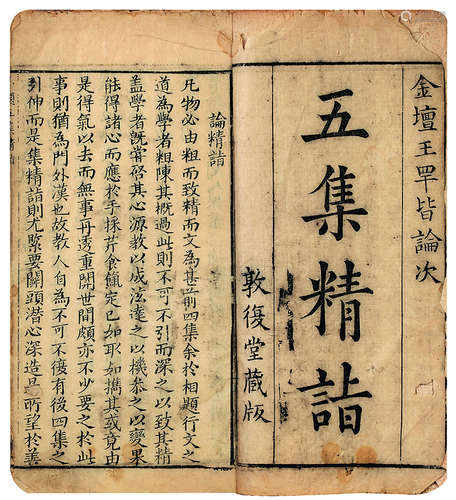 金壇王罕皆論次
五集精詣
敦復堂藏版
論精詣
凡物必由粗而致精而文為甚前四集余於相題行文之
道為學者粗陳其概過此則不可不引而深之以致其精
蓋學者旣嘗修其心源教以成法達之以機參之以變果
能得諸心而應於手採芹食餼定已如取如攜其或竟由
是得氣以去而無事再透重關世間頗亦不少要之於此
事則猶為門外漢也故教人自為不可不復有後四集之
引伸而是集精詣則尤緊要關頭潛心深造旦 所望於善